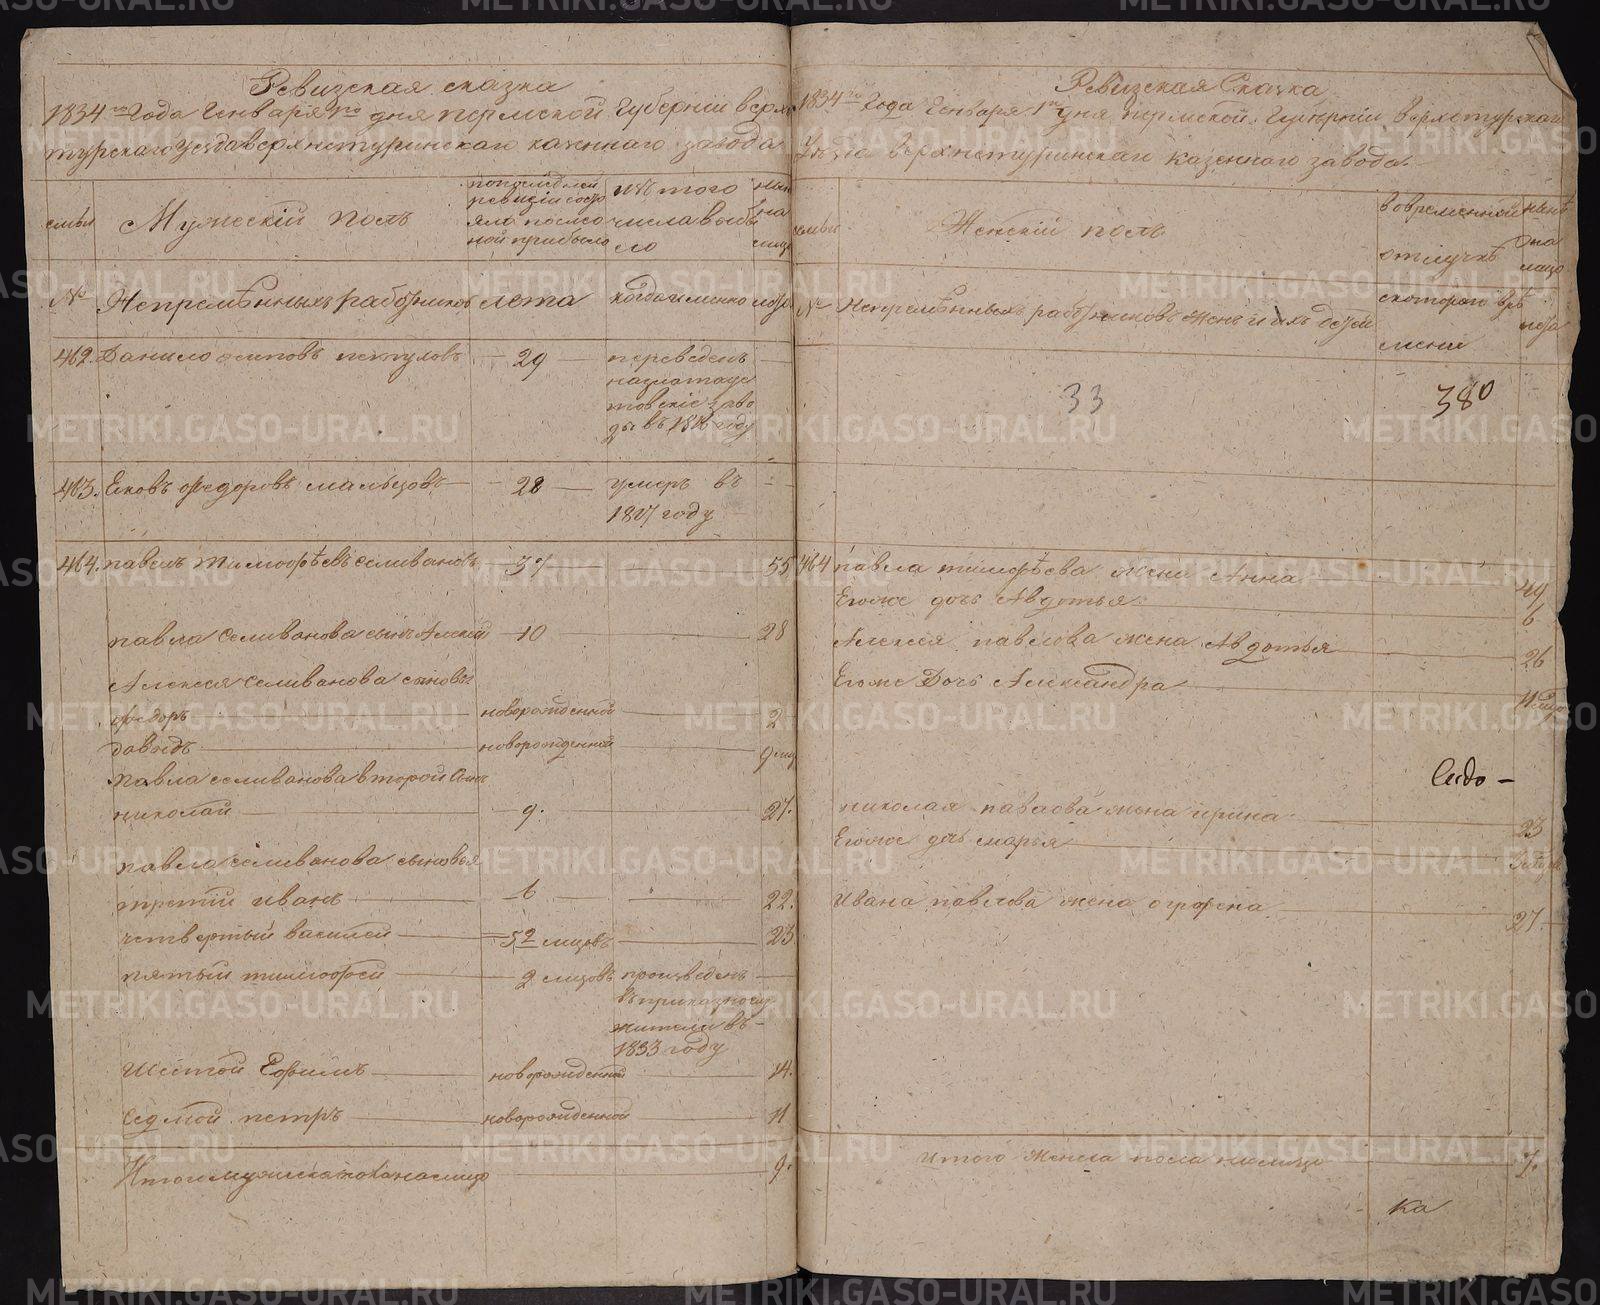 Ревизская сказка
1834го Года Генваря 1го дня пермской Губернии верхо
турскаго уезда верхнетуринскаго казеннаго завода
семьи
Мужескій полъ
по последней
ревизіи состо
яло и после
оной прибыло
изъ того
числа выбы
ло
ныне
на
лицо
№
Непремѣнныхъ работниковъ
лета
когда именно
лета
462. Данило осиповъ петуховъ 29
переведенъ
на златоус
товскіе заво
ды въ году
463. Ековъ федоровъ мальцовъ 28
умеръ въ
1827 году
464. павелъ тимофѣевъ селивановъ 37 55
павла селиванова сынъ Алексей 10 28
Алексея селиванова сыновья
федоръ новорожденной 2
давыдъ новорожденной 9 мц
павла селиванова второй сынъ
николай 9. 27.
павла селиванова сыновья
третій иванъ 6 22.
четвертый василей 5 мцовъ 23
пятый тимофей 2 мцовъ
произведенъ
въ приказнослу
жители въ
1833 году
шестой Ефимъ новорожденной 14.
седмой петръ новорожденной 11
Итого мужеска пола на лицо 9.
Ревизская Сказка
1834го Года Генваря 1го дня пермской Губерніи верхотурскаго
Уезда верхнетуринскаго казеннаго завода
семьи
Женскій полъ
во временной
отлучкѣ
нынѣ
на
лицо
№ Непремѣнныхъ работниковъ жены и ихъ дети
с котораго врѣ
мени
лета
33
380
464 павла тимофѣева жена Анна 49
Егоже дочь Авдотья 6
Алексея павлова жена Авдотья 26
Егоже Дочь Александра
николая павлова жена ирина 23
Егоже дочь марья
ивана павлова жена ографена 27
итого женска пола налицо 7.
ка